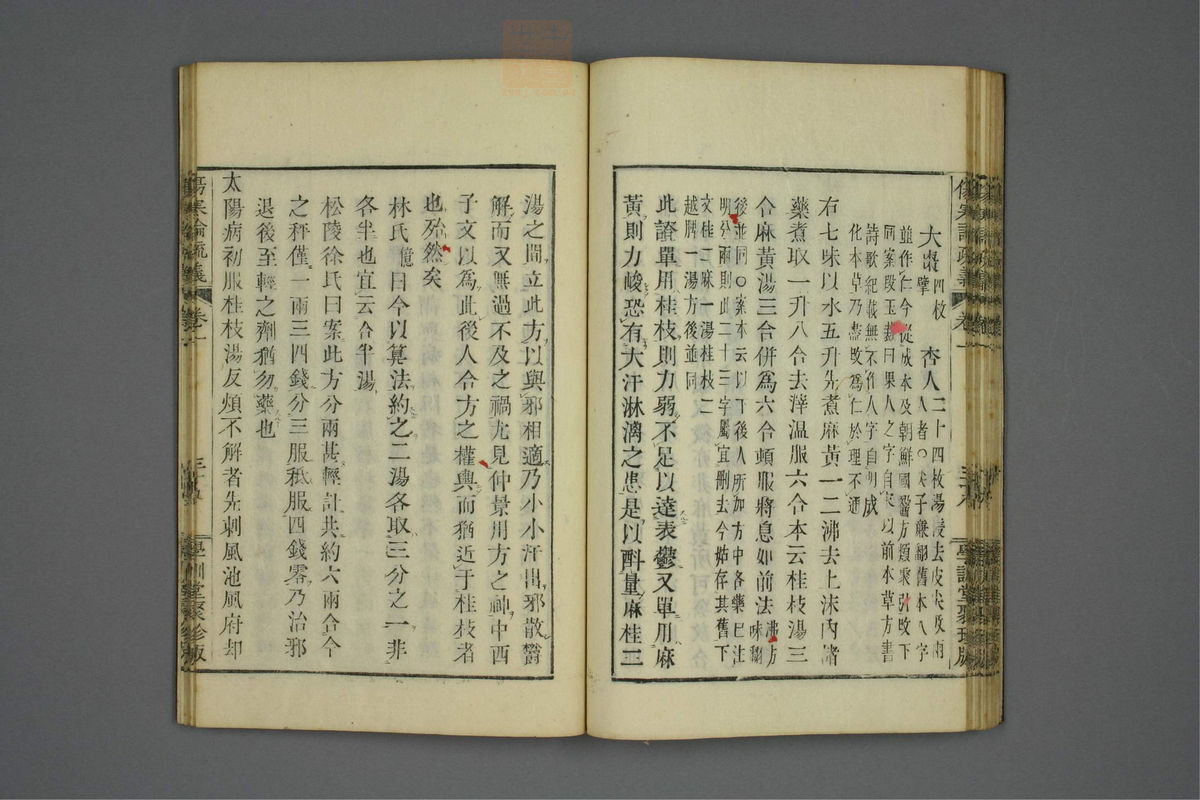 大棗擘四枚 杏人二十四枚湯浸去皮尖及兩
人者○尖子
並作仁今從成本及朝鮮國醫方類聚
同案段玉裁曰果人之字自宋以前本草方書
詩歌紀載無不作人字自明成
化本草乃盡改爲仁於理不通
右七味以水五升先煮麻黃一二沸去上沫內諸
藥煮取一升八合去滓溫服六合本云桂枝湯三
合麻黃湯三合併爲六合頓服將息如前法
後並同○案本云以下後人所加方中各藥已注
明分兩則此二十三字屬宜刪去今姑存其舊下
文桂二麻一湯桂枝二
越脾一湯方後並同
此證單用桂枝則力弱不足以達表鬱又單用麻
黃則力峻恐有大汗淋漓之患是以酙量麻桂二
湯之間立此方以與邪相適乃小小汗出邪散鬱
解而又無過不及之禍尤見仲景用方之神中西
子文以爲此後人合方之權輿而猶近于桂枝者
也殆然矣
林氏億曰今以算法約之二湯各取三分之一非
各半也宜云合半湯
松陵徐氏曰案此方分兩甚輕計共約六兩合今
之秤僅一兩三四錢分三服秪服四錢零乃治邪
退後至輕之劑猶勿藥也
太陽病初服桂枝湯反煩不解者先刺風池風府却
傷寒論疏義
卷一
學訓堂聚珍版